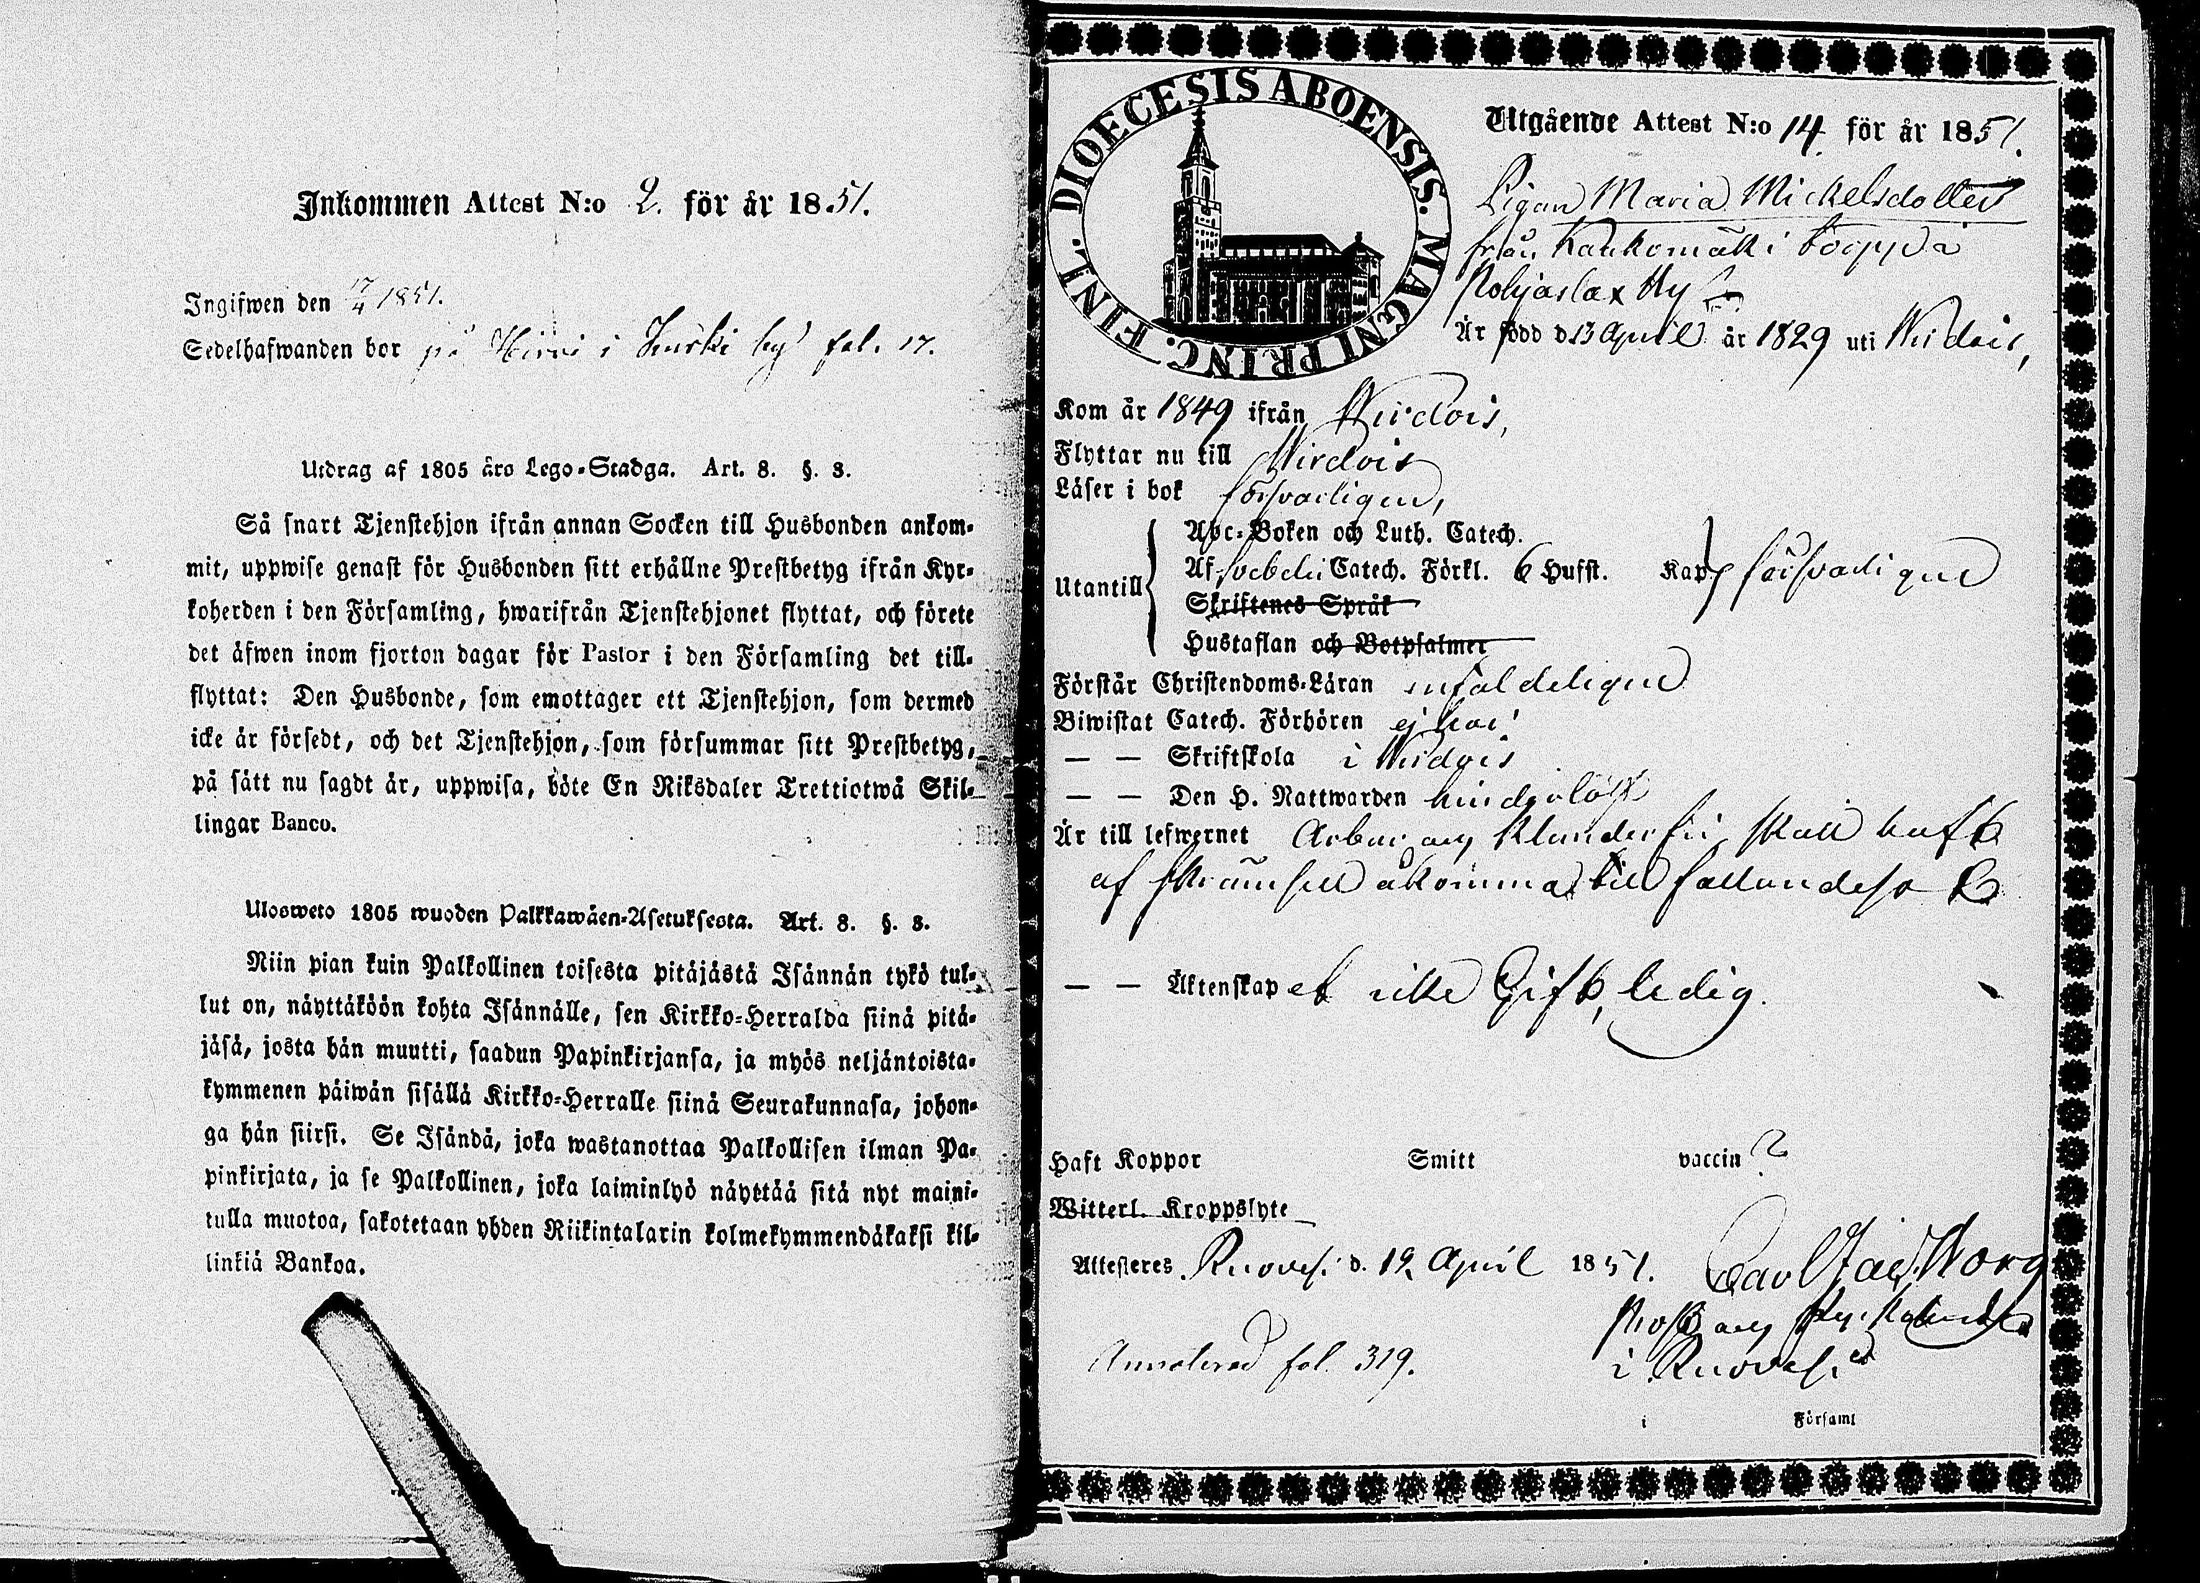 Inkommen Attest N:o 2. för år 1851.
Ingifwen den 17/4 1851.
Sedelhafwanden bor på i by fol. 17.
Utdrag af 1805 års Lego-Stadga. Art. 8. §. 3.
Så snart Tjenstehjon ifrån annan Socken till Husbonden ankom-
mit, uppwise genast för Husbonden sitt erhållne Prestbetyg ifrån Kyr-
koherden i den Församling, hwarifrån Tjenstehjonet flyttat, och förete
det äfwen inom fjorton dagar för Pastor i den Församling det till-
flyttat: Den Husbonde, som emottager ett Tjenstehjon, som dermed
icke är försedt, och det Tjenstehjon, som försummar sitt Prestbetyg,
på sätt nu sagdt är, uppwisa, böte En Riksdaler Trettiotwå Skil-
lingar Banco.
Ulosweto 1805 wuoden Palkkawäen-Asetuksesta. Art. 8. §. 3.
Niin pian kuin Palkollinen toisesta pitäjästä Isännän tykö tul-
lut on, näyttäköön kohta Isännälle, sen Kirkko-Herralda siinä pitä-
jäsä, josta hän muutti, saadun Papinkirjansa, ja myös neljäntoista-
kymmenen päiwän sisällä Kirkko-Herralle siinä Seurakunnasa, johon-
ga hän siirsi. Se Isändä, joka wastanottaa Palkollisen ilman Pa-
pinkirjata, ja se Palkollinen, joka laiminlyö näyttää sitä nyt maini-
tulla muotoa, sakotetaan yhden Riikintalarin kolmekymmendäkaksi kil-
linkiä Bankoa.
DIOECESIS ABOENSIS. MAGNI PRINC. FINL.
Utgående Attest N:o 14. för år 1851.
Pigan Maria Mickelsdotter
från Kaukomäki torpp å
Pohjaslax By
Är född d 13 April år 1829 uti Wirdois,
Kom år 1849 ifrån Wirdois,
Flyttar nu till Wirdois
Läser i bok försvarligen,
Abc-Boken och Luth. Catech.
Utantill Af Svebelii Catech. Förkl. 6 Hufst. Kap. försvarligen
Skriftenes Språk
Hustaflan och Botpsalmer
Förstår Christendoms-Läran enfaldeligen
Biwistat Catech. Förhören ej här!
— — Skriftskola i Wirdois
— — Den H. Nattwarden hinderlöst
Är till lefwernet Ärbar, och klanderfri, skall haft
af åkomma till
— — Äktenskapet icke Gift, ledig.
Haft Koppor Smitt vaccin ?
Witterl. Kroppslyte
Attesteres Ruovesi d. 12 April 1851.
Prost och Kyrkoherde
Annoterad fol. 319.
i Ruovesi
i Församl